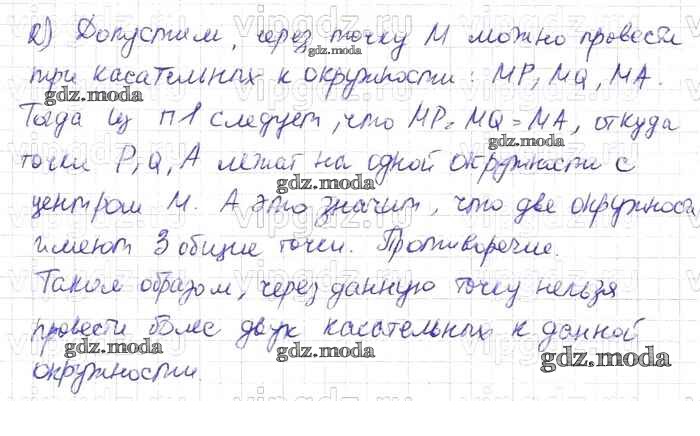 2) Допустим, через точку М можно провести
три касательных к окружности: MP, MQ, MA.
Тогда из п1 следует, что MP = MQ = MA, откуда
точки P, Q, A лежат на одной окружности с
центром М. А это значит, что две окружност
имеют 3 общие точки. Противоречие.
Таким образом, через данную точку нельзя
провести более двух касательных к данной
окружности.
gdz.moda
gdz.moda
gdz.moda
gdz.moda
gdz.moda
gdz.moda
gdz.moda
gdz.moda
gdz.moda
vipgdz.ru